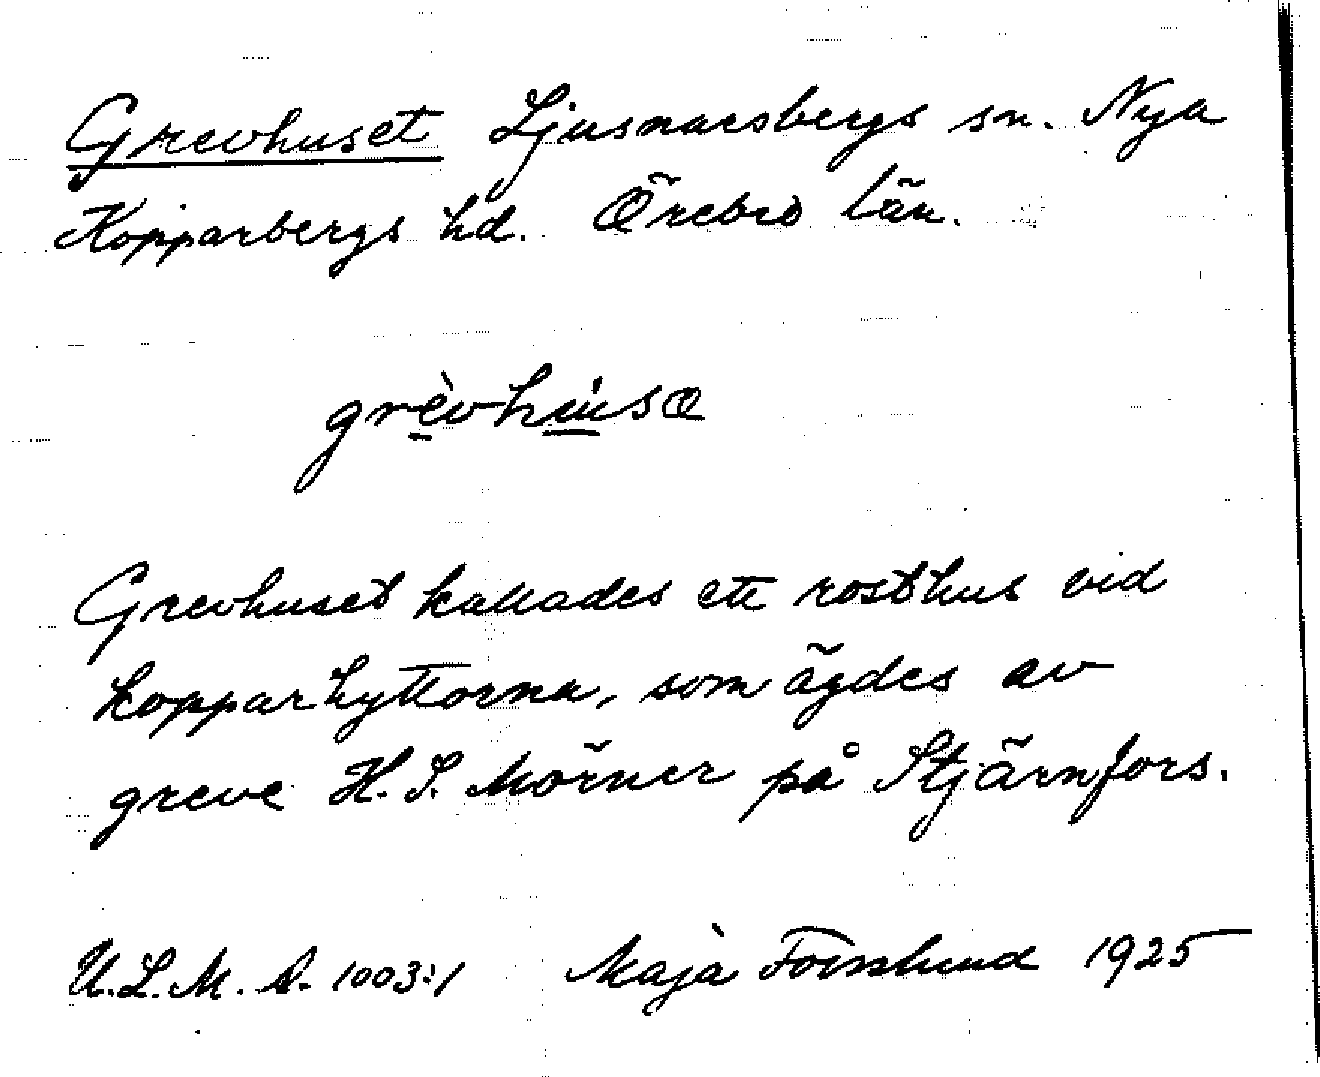 Grevhuset Ljusnarsbergs sn. Nya
Kopparbergs hd. Örebro län.
grèvhusa
Grevhuset kallades ett rosthus vid
kopparhyttorna, som ägdes av
greve H. S. Mörner på Stjärnfors.
U.L.M.A. 1003:1 Maja Forslund 1925